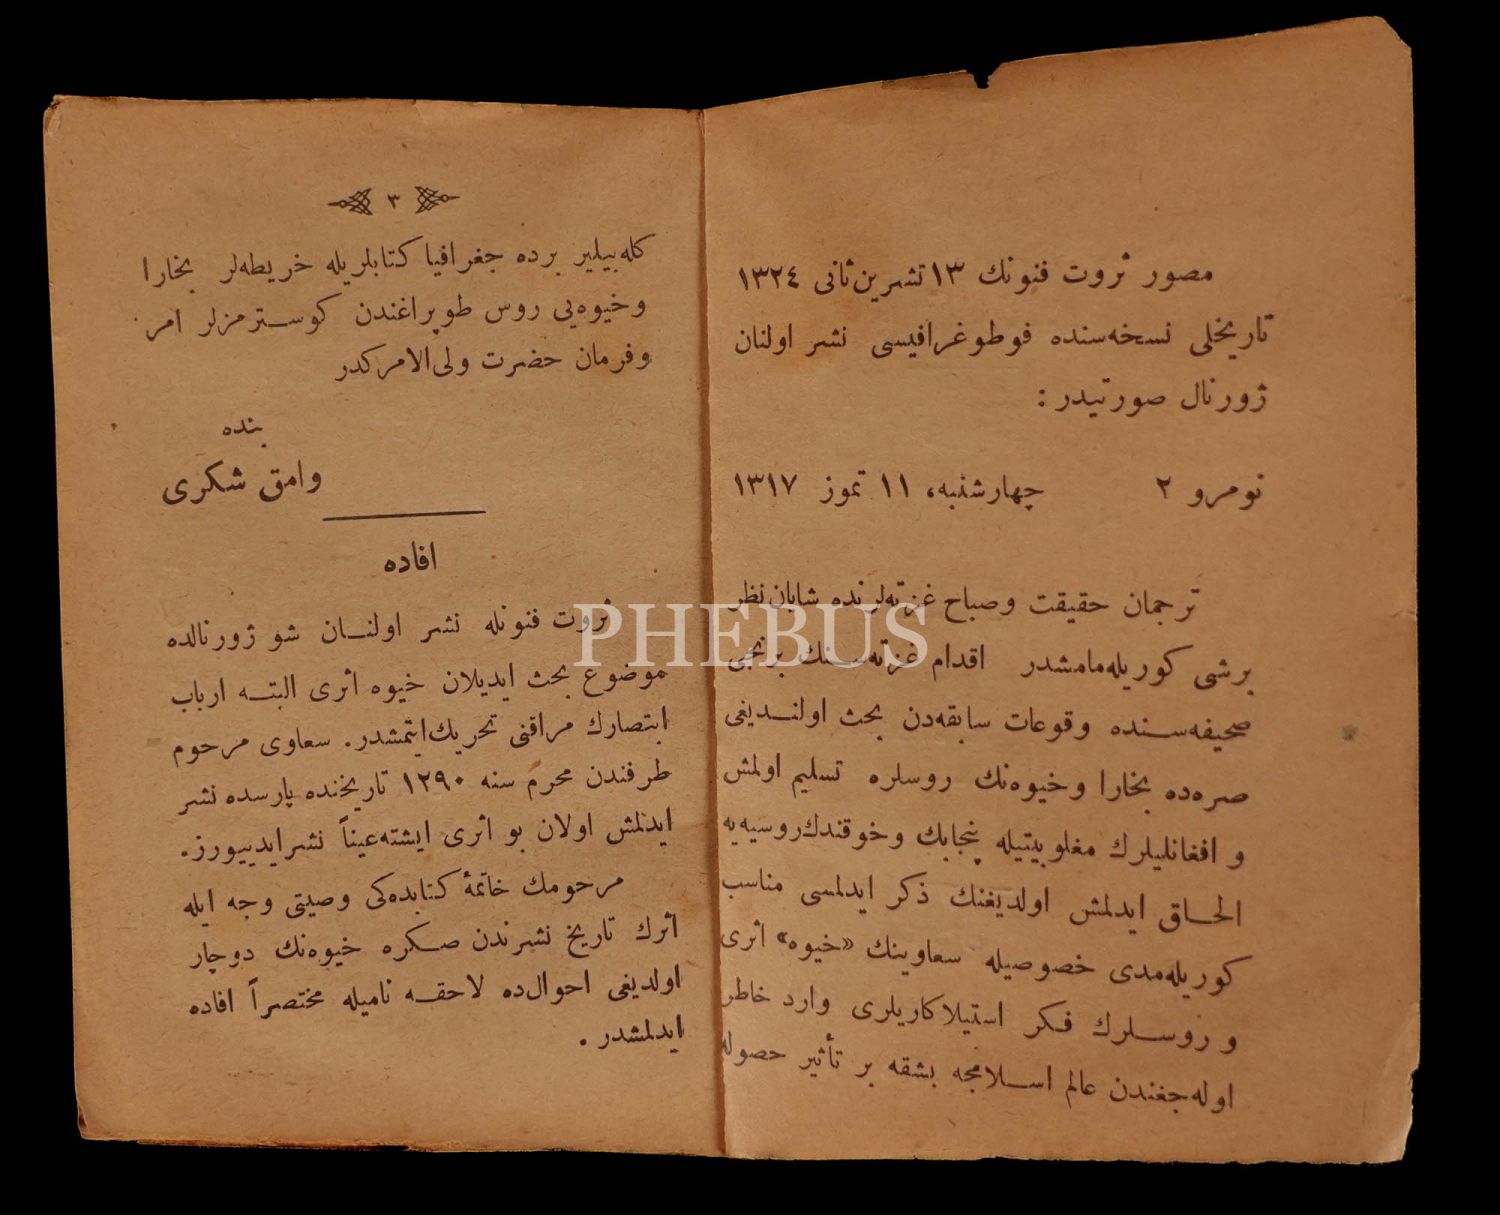 مصور ثروت فنونك ١٣ تشرين ثانى ١٣٢٤
تاريخلى نسخه‌سنده فوطوغرافيسى نشر اولنان
ژورنال صورتيدر :
نومرو ٢ چهارشنبه، ١١ تموز ١٣١٧
ترجمان حقيقت وصباح غزته‌لرنده شايان نظر
برشى كوريله‌مامشدر اقدام غزته‌سنك برنجى
صحيفه‌سنده وقوعات سابقه‌دن بحث اولنديغى
صره‌ده بخارا وخيوه‌نك روسلره تسليم اولمش
و افغانليلرك مغلوبيتيله پنجابك وخوقندك روسيه‌يه
الحاق ايدلمش اولديغنك ذكر ايدلمسى مناسب
كوريله‌مدى خصوصيله سعاوينك «خيوه» اثرى
و روسلرك فكر استيلاكاريلرى وارد خاطر
اوله‌جغندن عالم اسلامجه بشقه بر تأثير حصوله
٣
كله‌بيلير برده جغرافيا كتابلريله خريطه‌لر بخارا
وخيوه‌يى روس طوپراغندن كوسترمزلر امر
وفرمان حضرت ولى‌الامركدر
بنده
وامق شكرى
افاده
ثروت فنونله نشر اولنان شو ژورنالده
موضوع بحث ايديلان خيوه اثرى البته ارباب
ابتصارك مراقنى تحريك ايتمشدر. سعاوى مرحوم
طرفندن محرم سنه ١٢٩٠ تاريخنده پارسده نشر
ايدلمش اولان بو اثرى ايشته عيناً نشر ايدييورز.
مرحومك خاتمهٔ كتابده‌كى وصيتى وجه ايله
اثرك تاريخ نشرندن صكره خيوه‌نك دوچار
اولديغى احوال‌ده لاحقه ناميله مختصراً افاده
ايدلمشدر .
PHEBUS